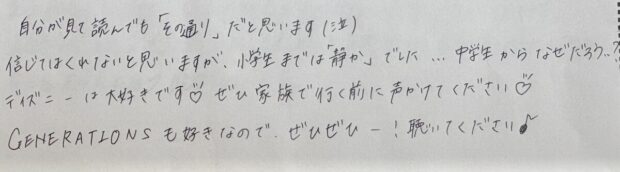 自分が見て読んでも「その通り」だと思います(泣)
信じてはくれないと思いますが、小学生までは「静か」でした…中学生からなぜだろう..?
ディズニーは大好きです♡ ぜひ家族で行く前に声かけてください♡
GENERATIONSも好きなので、ぜひぜひー!聴いてください♪